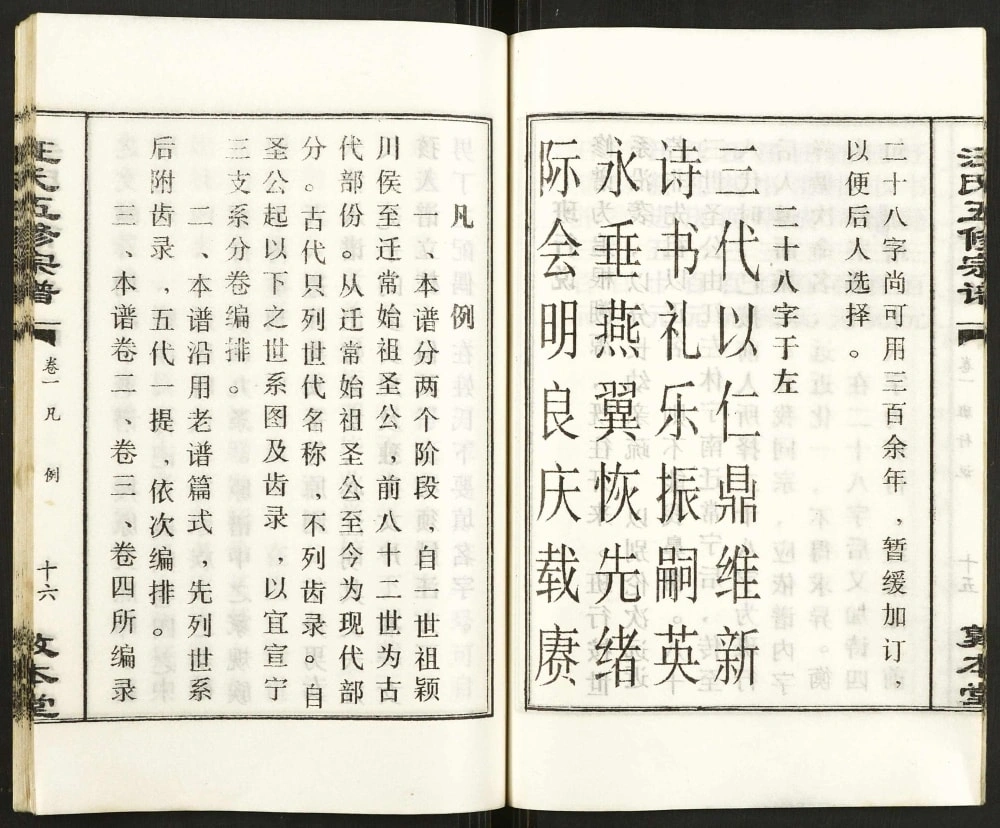 汪氏五修宗谱
卷一 班行说
十五
敦本堂
二十八字尚可用三百余年，暂缓加订，
以便后人选择。
二十八字于左
代以仁鼎维新
诗书礼乐振嗣英
永垂燕翼恢先绪
际会明良庆载赓
凡例
一、本谱分两个阶段，自一世祖颍
川侯至迁常始祖圣公前八十二世为古
代部份。从迁常始祖圣公至今为现代部
分。古代只列世代名称、不列齿录。自
圣公起以下之世系图及齿录，以宜宣宁
三支系分卷编排。
二、本谱沿用老谱篇式，先列世系
后附齿录，五代一提，依次编排。
三、本谱卷二、卷三、卷四所编录
汪氏五修宗谱
卷一 凡 例
十六
敦本堂